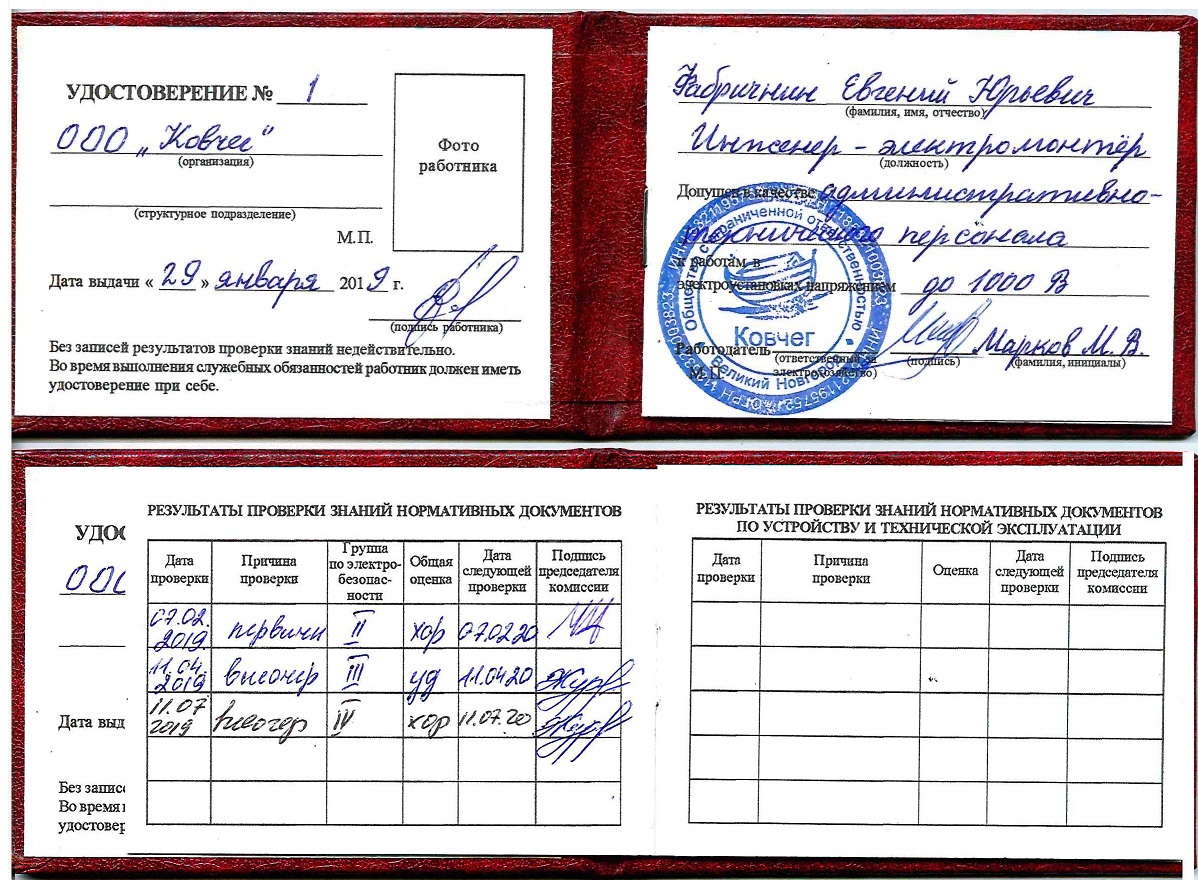 УДОСТОВЕРЕНИЕ № 1
ООО „Ковчег“
(организация)
(структурное подразделение)
Фото
работника
М.П.
Дата выдачи « 29 » января 2019 г.
(подпись работника)
Без записей результатов проверки знаний недействительно.
Во время выполнения служебных обязанностей работник должен иметь
удостоверение при себе.
Фабричнин Евгений Юрьевич
(фамилия, имя, отчество)
Инженер - электромонтёр
(должность)
Допущен в качестве административно-
технического персонала
к работам в
электроустановках напряжением до 1000 В
Работодатель Марков М. В.
(ответственный за
электрохозяйство)
(подпись)
(фамилия, инициалы)
М.П.
Общество с ограниченной ответственностью
Ковчег
Великий Новгород
УДОС
ООО
Дата выд
Без записе
Во время
удостовер
РЕЗУЛЬТАТЫ ПРОВЕРКИ ЗНАНИЙ НОРМАТИВНЫХ ДОКУМЕНТОВ
Дата проверки Причина проверки Группа по электро-безопас-ности Общая оценка Дата следующей проверки Подпись председателя комиссии
07.02.2019. первичн II хор 07.02.20
11.04.2019 внеочер III уд 11.04.20
11.07 2019 внеочер IV хор 11.07.20
РЕЗУЛЬТАТЫ ПРОВЕРКИ ЗНАНИЙ НОРМАТИВНЫХ ДОКУМЕНТОВ
ПО УСТРОЙСТВУ И ТЕХНИЧЕСКОЙ ЭКСПЛУАТАЦИИ
Дата проверки Причина проверки Оценка Дата следующей проверки Подпись председателя комиссии